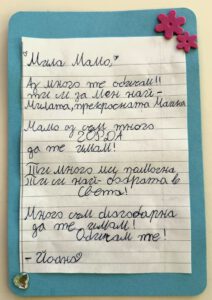 "Мила Мамо,"
Аз много те обичам!!
ти си за мен най-
Милата, прекрасната Майка
Мамо аз съм много
ГОРДА
да те имам!
Ти много ми помогна
Ти си най-добрата в
Света!
Много съм благодарна
да те имам!
Обичам те!
- Йоана